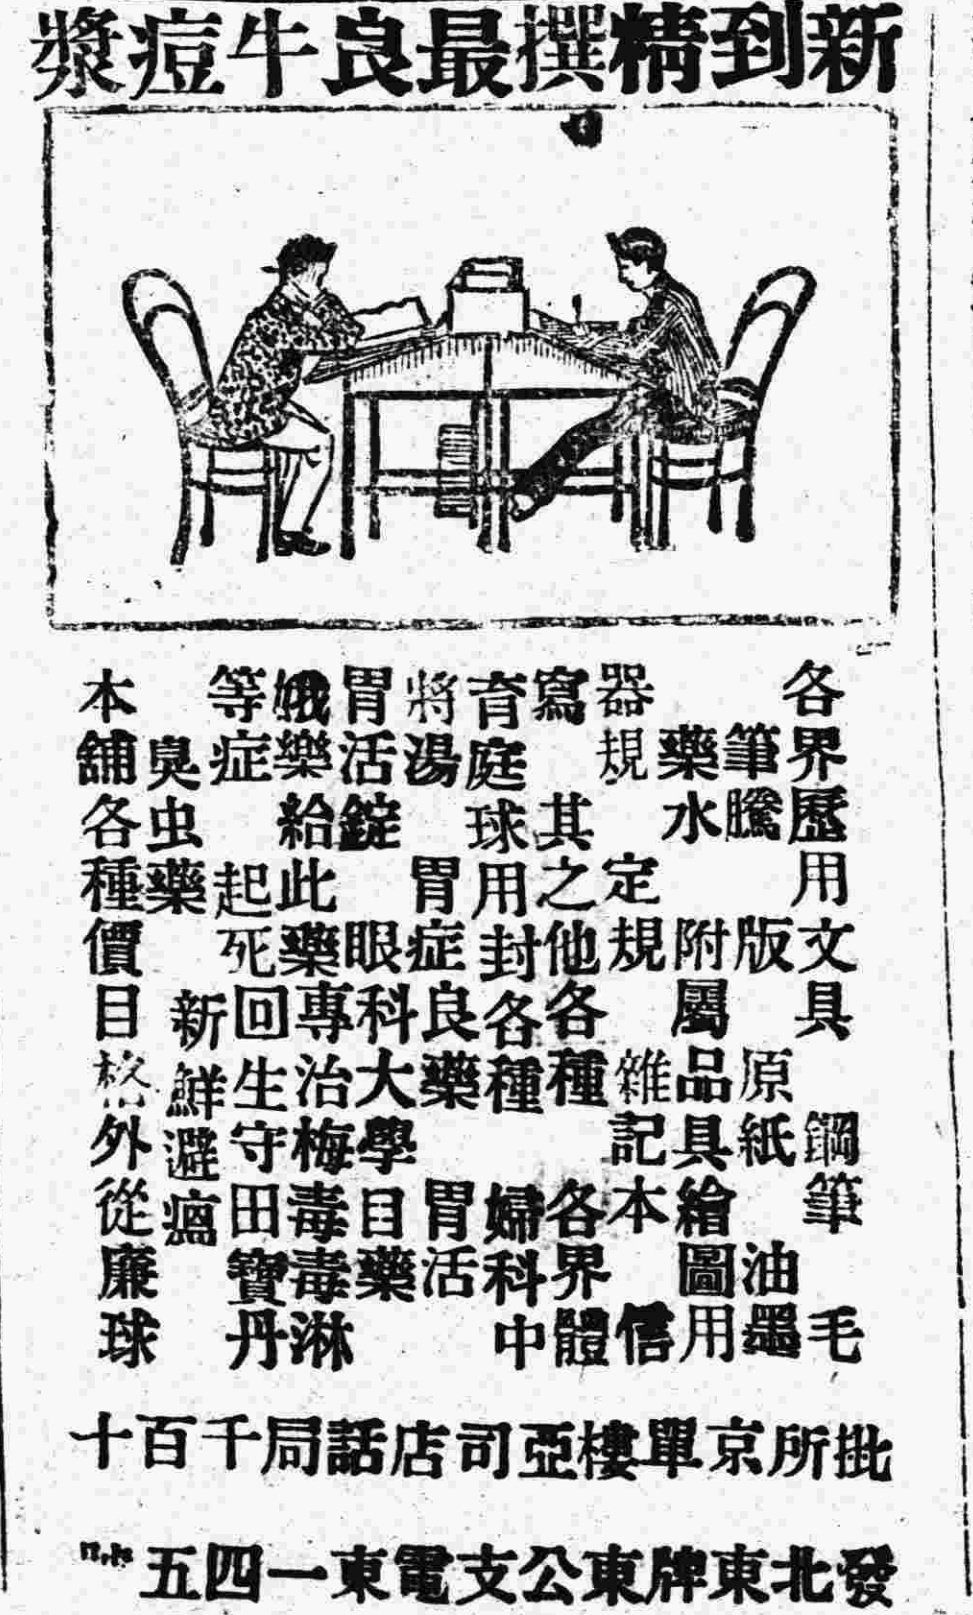 新到精撰最良牛痘漿
各界歷用文具 鋼筆 毛
筆騰版 原紙 油墨
藥水 附屬品具繪圖用
器規 定規 雜記本 信
寫 其之他各種 各界體
育庭球用封各種 婦科中
將湯 胃症良藥 胃活
胃活錠 眼科大學目藥
娥樂給此藥專治梅毒毒淋
等症 起死回生守田寶丹
臭虫藥 新鮮避瘟
本舖各種價目格外從廉球
批發所北京東單牌樓東亞公司支店電話東局一千四百五十